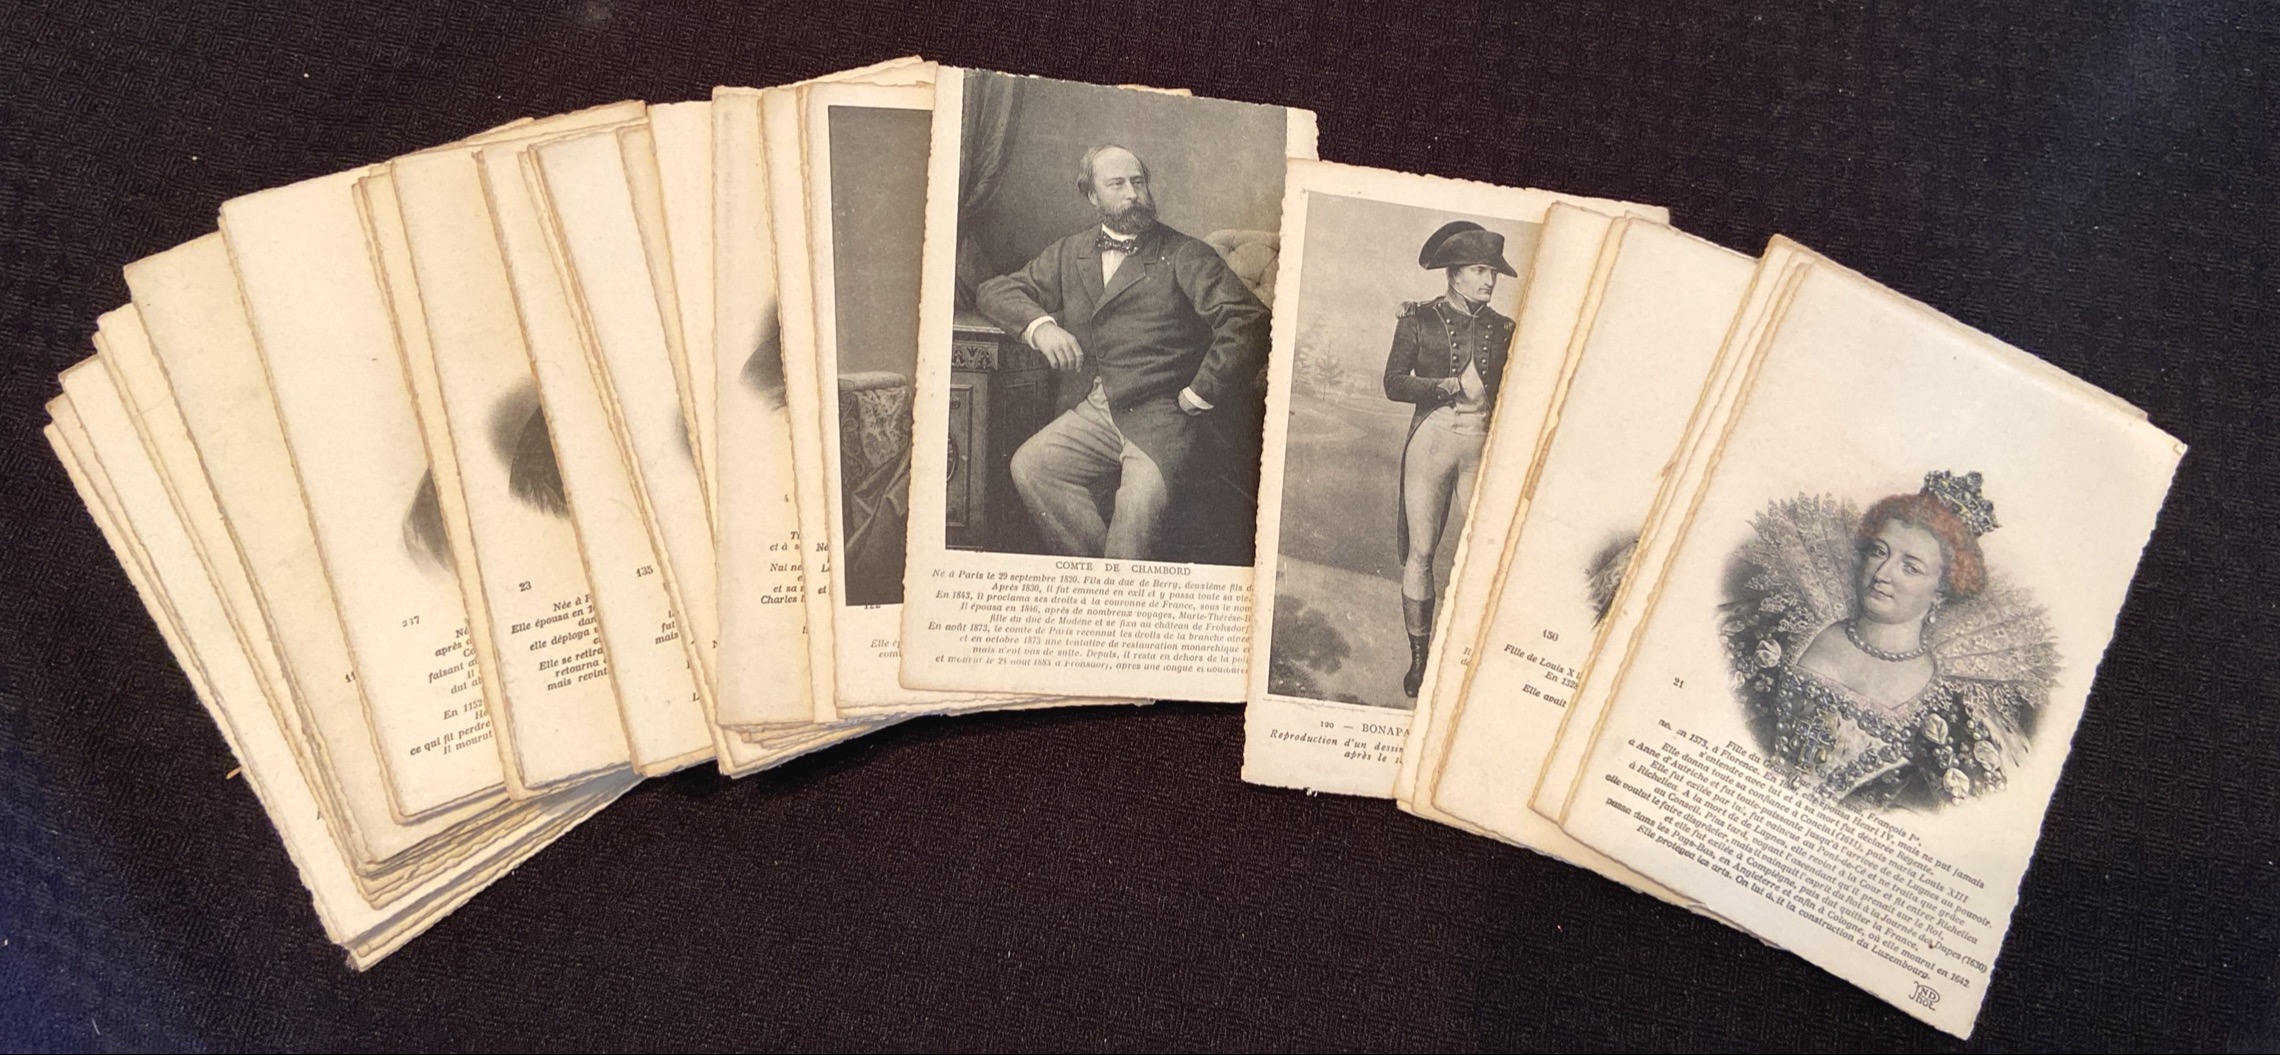 COMTE DE CHAMBORD
Né à Paris le 29 septembre 1820. Fils du duc de Berry, deuxième fils d
Après 1830, il fut emmené en exil et y passa toute sa vie.
En 1843, il proclama ses droits à la couronne de France, sous le nom
Il épousa en 1846, après de nombreux voyages, Marie-Thérèse-B
fille du duc de Modène et se fixa au château de Frohsdorf
En août 1873, le comte de Paris reconnut les droits de la branche aînée
et en octobre 1873 une tentative de restauration monarchique e
mais n'eut pas de suite. Depuis, il resta en dehors de la poli
et mourut le 24 août 1883 à Frohsdorf, après une longue et
120 — BONAPA
Reproduction d'un dessin
après le
450
Fille de Louis X
En 132
Elle avait
21
Fille du Grand
née en 1573, à Florence. En épousa Henri IV, mais ne put jamais
s'entendre avec lui et à sa mort fut déclarée Régente.
Elle donna toute sa confiance à Concini (1611), puis maria Louis XIII
à Anne d'Autriche et fut toute-puissante jusqu'à l'arrivée de de Luynes au pouvoir.
Elle fut exilée par lui, fut vaincue au Pont-de-Cé et ne traita que grâce
à Richelieu. A la mort de de Luynes, elle revint à la Cour et fit entrer Richelieu
au Conseil. Plus tard, voyant l'ascendant qu'il prenait sur le Roi,
elle voulut le faire disgrâcier, mais il vainquit l'esprit du Roi à la Journée des Dupes (1630)
et elle fut exilée à Compiègne, puis dut quitter la France,
passa dans les Pays-Bas, en Angleterre et enfin à Cologne, où elle mourut en 1642.
Elle protégea les arts. On lui doit la construction du Luxembourg.
ND
Phot
237
Né
après
faisant a
Il
dut a
En 1152
He
ce qui fit perdre
Il mourut
23
Née à F
Elle épousa en 1
dan
elle déploya
Elle se retira
retourna
mais revint
135
fut
mais
et à s
Nul ne
et sa
Charles
Né
et
122
Elle ép
com